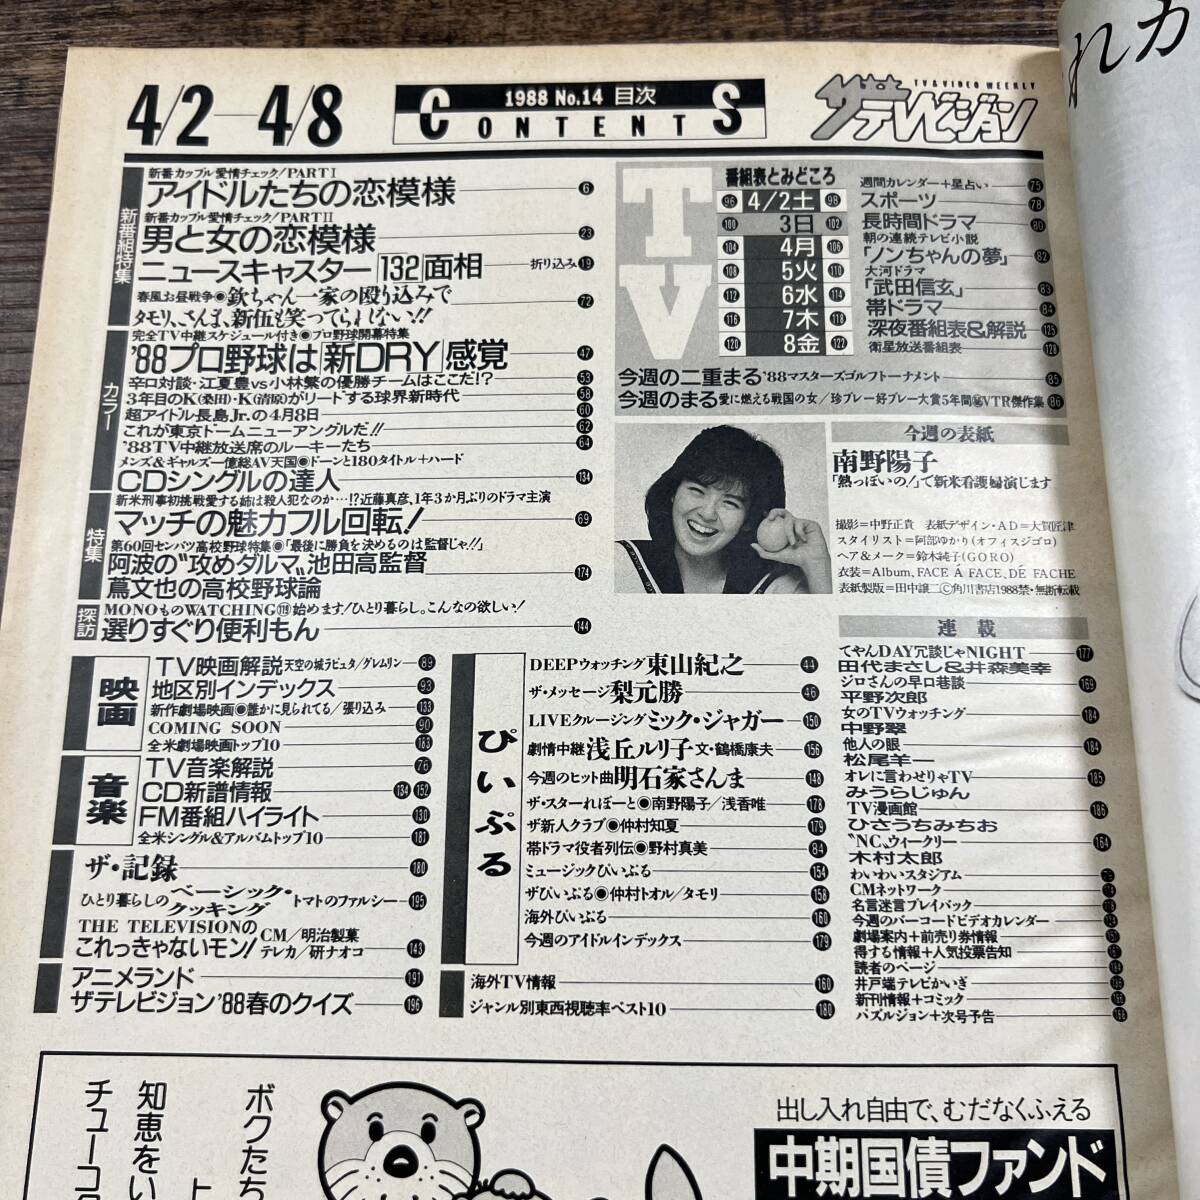 4/2—4/8
1988 No.14 目次
CONTENTS
TV & VIDEO WEEKLY
ザテレビジョン
新番組特集
新番カップル愛情チェック/PART I
アイドルたちの恋模様 6
新番カップル愛情チェック/PART II
男と女の恋模様 23
ニュースキャスター「132」面相 折り込み19
春風お昼戦争◉欽ちゃん一家の殴り込みで 72
タモリ、さんま、新伍も笑ってられない!!
カラー
完全TV中継スケジュール付き◉プロ野球開幕特集
'88プロ野球は「新DRY」感覚 47
辛口対談・江夏豊vs小林繁の優勝チームはここだ!? 53
3年目のK(桑田)・K(清原)がリードする球界新時代 58
超アイドル長島Jr.の4月8日 60
これが東京ドームニューアングルだ!! 62
'88TV中継放送席のルーキーたち 64
メンズ&ギャルズ一億総AV天国◉ドーンと180タイトル+ハード
CDシングルの達人 134
特集
新米刑事初挑戦愛する姉は殺人犯なのか…!?近藤真彦、1年3か月ぶりのドラマ主演
マッチの魅力フル回転! 69
第60回センバツ高校野球特集◉「最後に勝負を決めるのは監督じゃ!!」
阿波の"攻めダルマ"池田高監督 174
蔦文也の高校野球論
探訪
MONOものWATCHING 119 始めます/ひとり暮らし。こんなの欲しい!
選りすぐり便利もん 144
映画
TV映画解説 天空の城ラピュタ/グレムリン 89
地区別インデックス 93
新作劇場映画◉誰かに見られてる/張り込み 133
COMING SOON 90
全米劇場映画トップ10 163
音楽
TV音楽解説 76
CD新譜情報 134 152
FM番組ハイライト 130
全米シングル&アルバムトップ10 181
ザ・記録 180
ひとり暮らしのベーシック・クッキング トマトのファルシー 195
THE TELEVISIONの
これっきゃないモン! CM/明治製菓 テレカ/研ナオコ 143
アニメランド 191
ザテレビジョン'88春のクイズ 196
TV
番組表とみどころ
96 4/2土 98
100 3日 102
104 4月 106
108 5火 110
112 6水 114
116 7木 118
120 8金 122
週間カレンダー+星占い 75
スポーツ 78
長時間ドラマ 80
朝の連続テレビ小説
「ノンちゃんの夢」 82
大河ドラマ
「武田信玄」 83
帯ドラマ 84
深夜番組表&解説 125
衛星放送番組表 128
今週の二重まる '88マスターズゴルフトーナメント 85
今週のまる 愛に燃える戦国の女/珍プレー好プレー大賞5年間㊙VTR傑作集 86
今週の表紙
南野陽子
「熱っぽいの!」で新米看護婦演じます
撮影=中野正貴 表紙デザイン・AD=大賀匠津
スタイリスト=阿部ゆかり(オフィスジゴロ)
ヘア&メーク=鈴木純子(GORO)
衣装=Album, FACE Á FACE, DÉ FACHE
表紙製版=田中譲二Ⓒ角川書店1988禁・無断転載
ぴいぷる
DEEPウォッチング 東山紀之 44
ザ・メッセージ 梨元勝 46
LIVEクルージング ミック・ジャガー 150
劇情中継 浅丘ルリ子 文・鶴橋康夫 156
今週のヒット曲 明石家さんま 148
ザ・スターれぽーと◉南野陽子/浅香唯 178
ザ新人クラブ◉仲村知夏 179
帯ドラマ役者列伝◉野村真美 84
ミュージックぴいぷる 154
ザぴいぷる◉仲村トオル/タモリ 158
海外ぴいぷる 160
今週のアイドルインデックス 179
海外TV情報 160
ジャンル別東西視聴率ベスト10 180
連載
てやんDAY冗談じゃNIGHT 177
田代まさし&井森美幸
ジロさんの早口巷談 169
平野次郎
女のTVウォッチング 184
中野翠
他人の眼 184
松尾羊一
オレに言わせりゃTV 185
みうらじゅん
TV漫画館 186
ひさうちみちお
"NC"ウィークリー 164
木村太郎
わいわいスタジアム
CMネットワーク
名言迷言プレイバック
今週のバーコードビデオカレンダー
劇場案内+前売り券情報
得する情報+人気投票告知
読者のページ
井戸端テレビかいぎ
新刊情報+コミック
パズルジョン+次号予告
ボクたち
知恵をい
チューコク
出し入れ自由で、むだなくふえる
中期国債ファンド